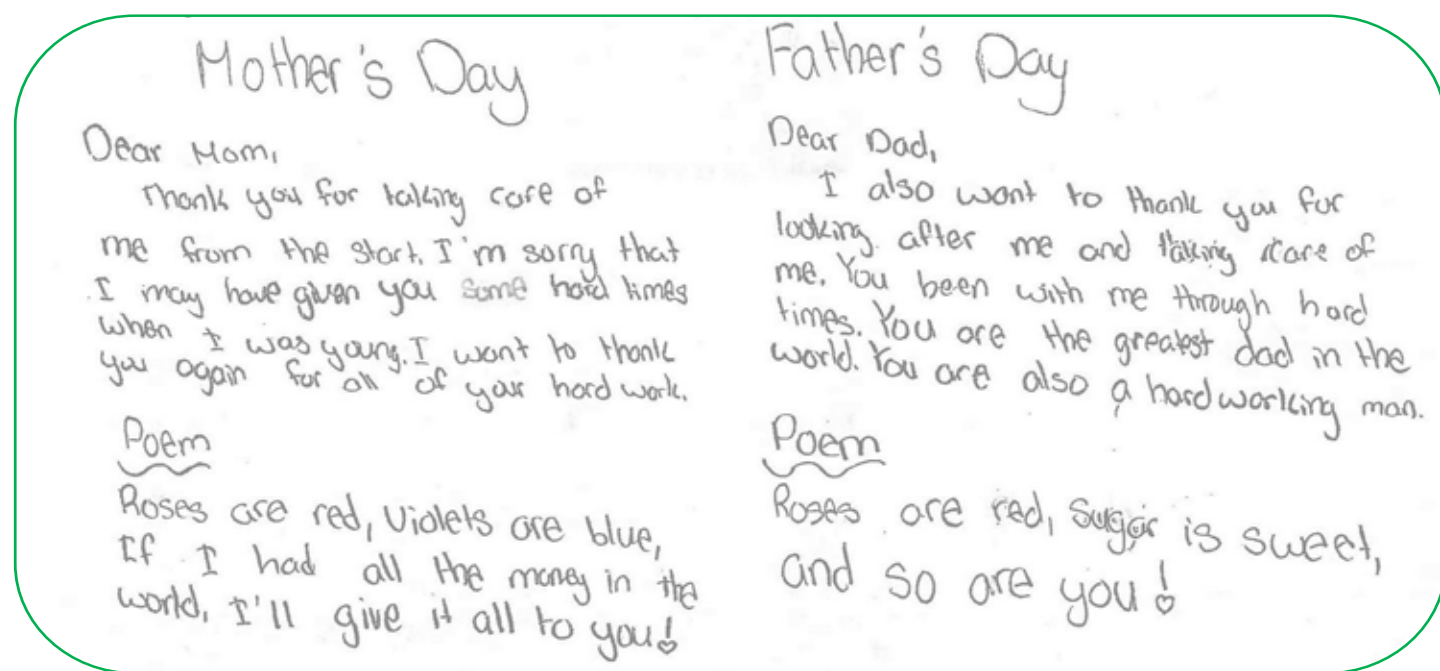 Mother's Day
Dear Mom,
Thank you for taking care of
me from the start. I'm sorry that
I may have given you some hard times
when I was young. I want to thank
you again for all of your hard work.
Poem
Roses are red, Violets are blue,
If I had all the money in the
world, I'll give it all to you!
Father's Day
Dear Dad,
I also want to thank you for
looking after me and taking care of
me. You been with me through hard
times. You are the greatest dad in the
world. You are also a hardworking man.
Poem
Roses are red, sugar is sweet,
and so are you!